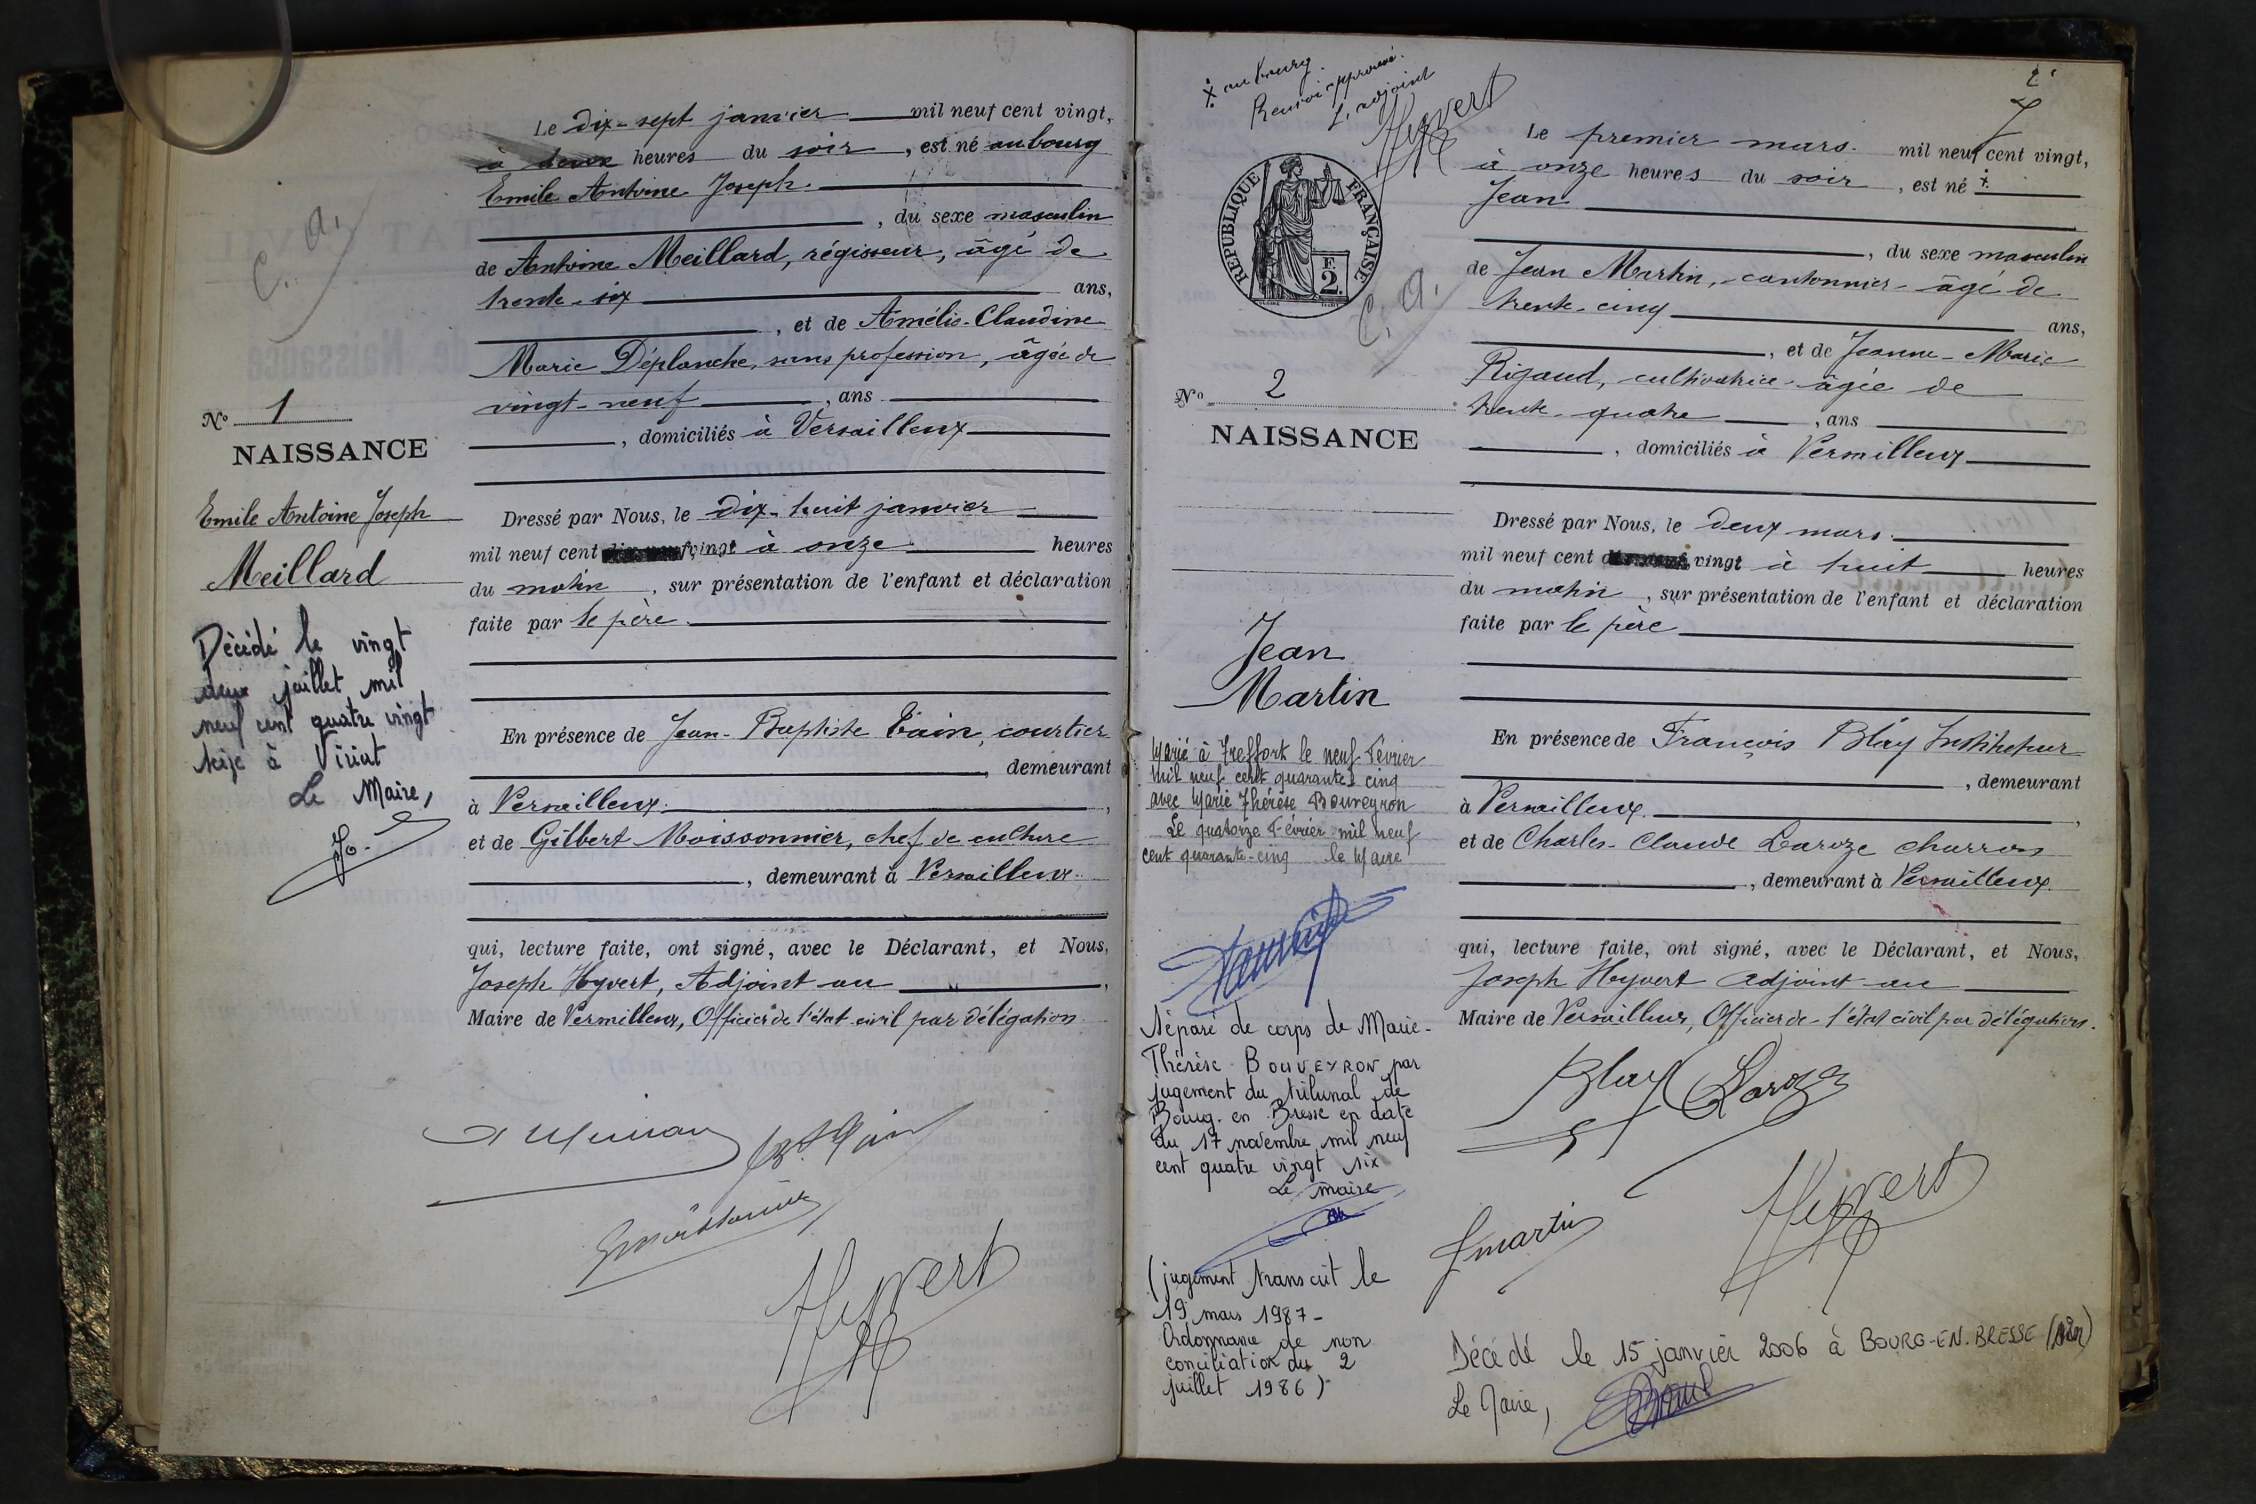 Le dix-sept janvier mil neuf cent vingt,
à deux heures du soir, est né au bourg
Emile Antoine Joseph
, du sexe masculin
de Antoine Meillard, régisseur, âgé de
trente-six ans,
, et de Amélie-Claudine
Marie Déplanche, sans profession, âgée de
vingt-neuf, ans
, domiciliés à Versailleux
C. a.
N° 1
NAISSANCE
Emile Antoine Joseph
Meillard
Décédé le vingt
deux juillet mil
neuf cent quatre vingt
seize à Viriat
Le Maire,
Dressé par Nous, le dix-huit janvier
mil neuf cent vingt à onze heures
du matin, sur présentation de l'enfant et déclaration
faite par le père.
En présence de Jean-Baptiste Eain, courtier
, demeurant
à Versailleux,
et de Gilbert Moissonnier, chef de culture
, demeurant à Versailleux
qui, lecture faite, ont signé, avec le Déclarant, et Nous,
Joseph Hyvert, Adjoint au
Maire de Versailleux, Officier de l'état-civil par délégation.
Hyvert
+ au bourg.
Renvoi approuvé.
L'adjoint
Hyvert
2
7
RÉPUBLIQUE FRANÇAISE
F.
2.
C. a.
Le premier mars mil neuf cent vingt,
à onze heures du soir, est né +
Jean
, du sexe masculin
de Jean Martin, cantonnier âgé de
trente-cinq ans,
, et de Jeanne-Marie
Rigaud, cultivatrice âgée de
trente-quatre, ans
, domiciliés à Versailleux
N° 2
NAISSANCE
Jean
Martin
Marié à Treffort le neuf Février
mil neuf cent quarante cinq
avec Marie Thérèse Bouveyron
Le quatorze Février mil neuf
cent quarante-cinq le Maire
Séparé de corps de Marie-
Thérèse BOUVEYRON par
jugement du tribunal de
Bourg-en-Bresse en date
du 17 novembre mil neuf
cent quatre vingt six
Le maire
(jugement transcrit le
19 mars 1987-
Ordonnance de non
conciliation du 2
juillet 1986)
Dressé par Nous, le deux mars
mil neuf cent vingt à huit heures
du matin, sur présentation de l'enfant et déclaration
faite par le père
En présence de François Blay Instituteur
, demeurant
à Versailleux,
et de Charles-Claude Laroze charron
, demeurant à Versailleux
qui, lecture faite, ont signé, avec le Déclarant, et Nous,
Joseph Heyvert adjoint au
Maire de Versailleux, Officier de l'état civil par délégation.
Blay Laroze
Jmartin Hyvert
Décédé le 15 janvier 2006 à BOURG-EN-BRESSE (Ain)
Le Maire,